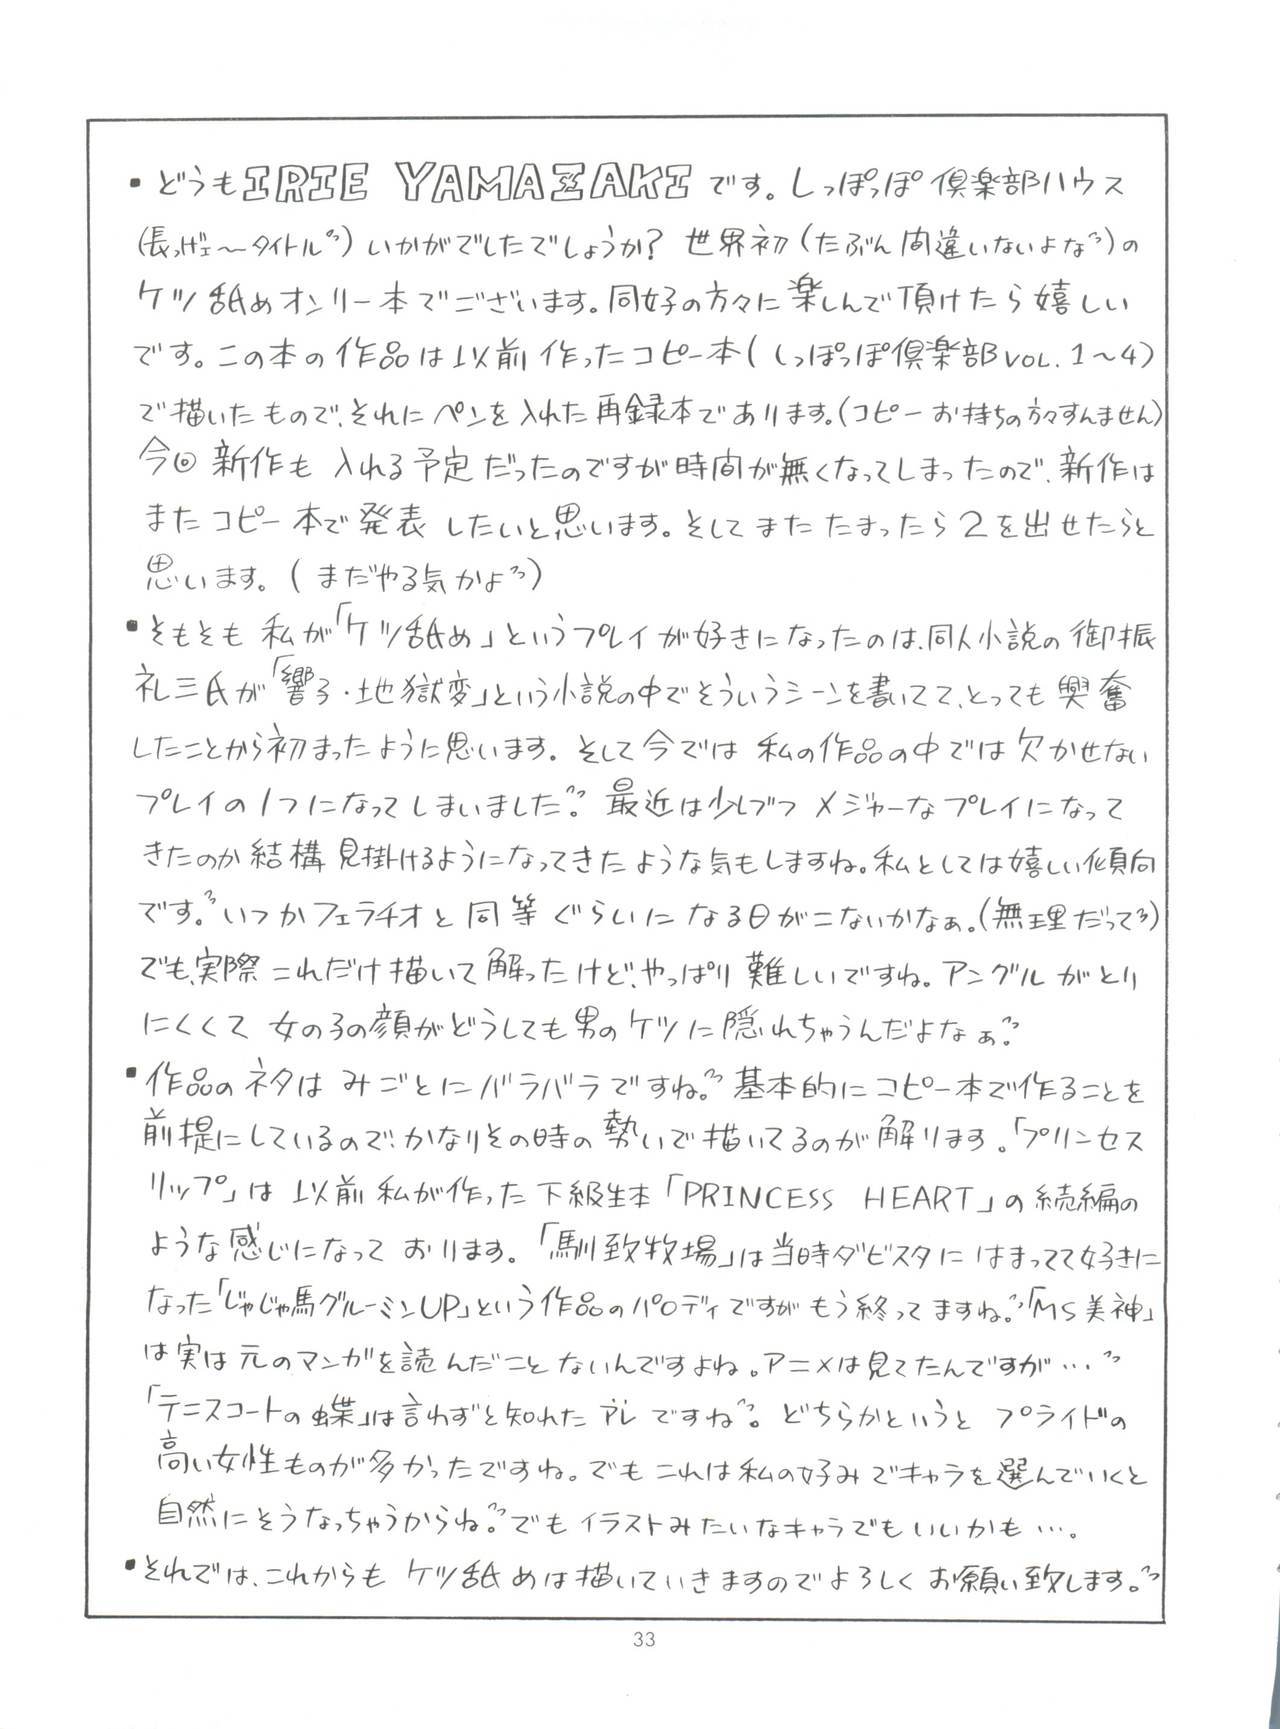 ・どうもIRIE YAMAZAKIです。しっぽっぽ倶楽部ハウス
(長っげェ〜タイトル)いかがでしたでしょうか？世界初(たぶん間違いないよな)の
ケツ舐めオンリー本でございます。同好の方々に楽しんで頂けたら嬉しい
です。この本の作品は以前作ったコピー本(しっぽっぽ倶楽部VOL.1〜4)
で描いたもので、それにペンを入れた再録本であります。(コピーお持ちの方々すんません)
今回新作も入れる予定だったのですが時間が無くなってしまったので、新作は
またコピー本で発表したいと思います。そしてまたたまったら2を出せたらと
思います。(まだやる気かよ)
・そもそも私が「ケツ舐め」というプレイが好きになったのは、同人小説の御振
礼三氏が「響子・地獄変」という小説の中でそういうシーンを書いてて、とっても興奮
したことから初まったように思います。そして今では私の作品の中では欠かせない
プレイの1つになってしまいました。最近は少しづつメジャーなプレイになって
きたのか結構見掛けるようになってきたような気もしますね。私としては嬉しい傾向
です。いつかフェラチオと同等ぐらいになる日がこないかなぁ。(無理だって)
でも、実際これだけ描いて解ったけど、やっぱり難しいですね。アングルがとり
にくくて女の子の顔がどうしても男のケツに隠れちゃうんだよなぁ。
・作品のネタはみごとにバラバラですね。基本的にコピー本で作ることを
前提にしているので、かなりその時の勢いで描いてるのが解ります。「プリンセス
リップ」は以前私が作った下級生本「PRINCESS HEART」の続編の
ような感じになっております。「馴致牧場」は当時ダビスタにはまってて好きに
なった「じゃじゃ馬グルーミンUP」という作品のパロディですがもう終ってますね。「MS美神」
は実は元のマンガを読んだことないんですよね。アニメは見てたんですが…
「テニスコートの蝶」は言わずと知れたアレですね。どちらかというとプライドの
高い女性ものが多かったですね。でもこれは私の好みでキャラを選んでいくと
自然にそうなっちゃうからね。でもイラストみたいなキャラでもいいかも…。
・それでは、これからもケツ舐めは描いていきますのでよろしくお願い致します。
33